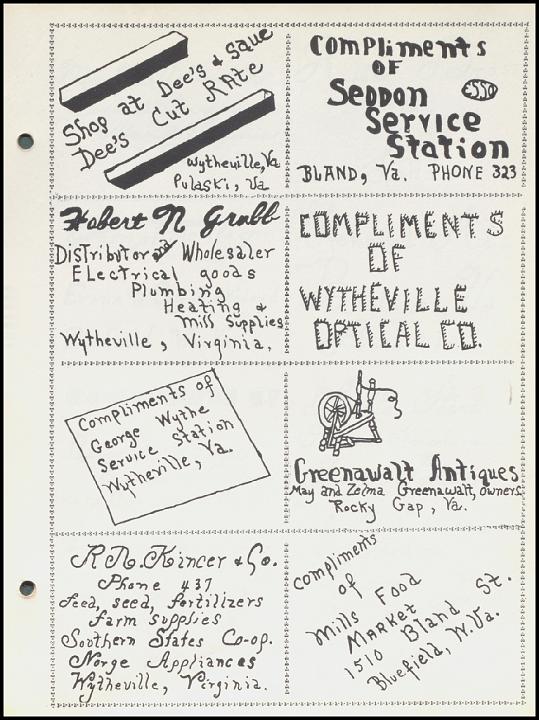 Shop at Dee's & Save
Dee's Cut Rate
Wytheville, Va
Pulaski, Va
Compliments
OF
Seddon
Service
Station
ESSO
BLAND, Va. PHONE 323
Hobert N Grubb
Distributor and Wholesaler
Electrical goods
Plumbing
Heating &
Mill Supplies
Wytheville, Virginia.
COMPLIMENTS
OF
WYTHEVILLE
OPTICAL CO.
Compliments of
George Wythe
Service Station
Wytheville, Va.
Greenawalt Antiques
May and Zelma Greenawalt, owners
Rocky Gap, Va.
R.N. Kincer & Co.
Phone 437
Feed, seed, fertilizers
farm supplies
Southern States Co-op.
Norge Appliances
Wytheville, Virginia.
Compliments
of
Mills Food
MARKET
1510 Bland St.
Bluefield, W.Va.